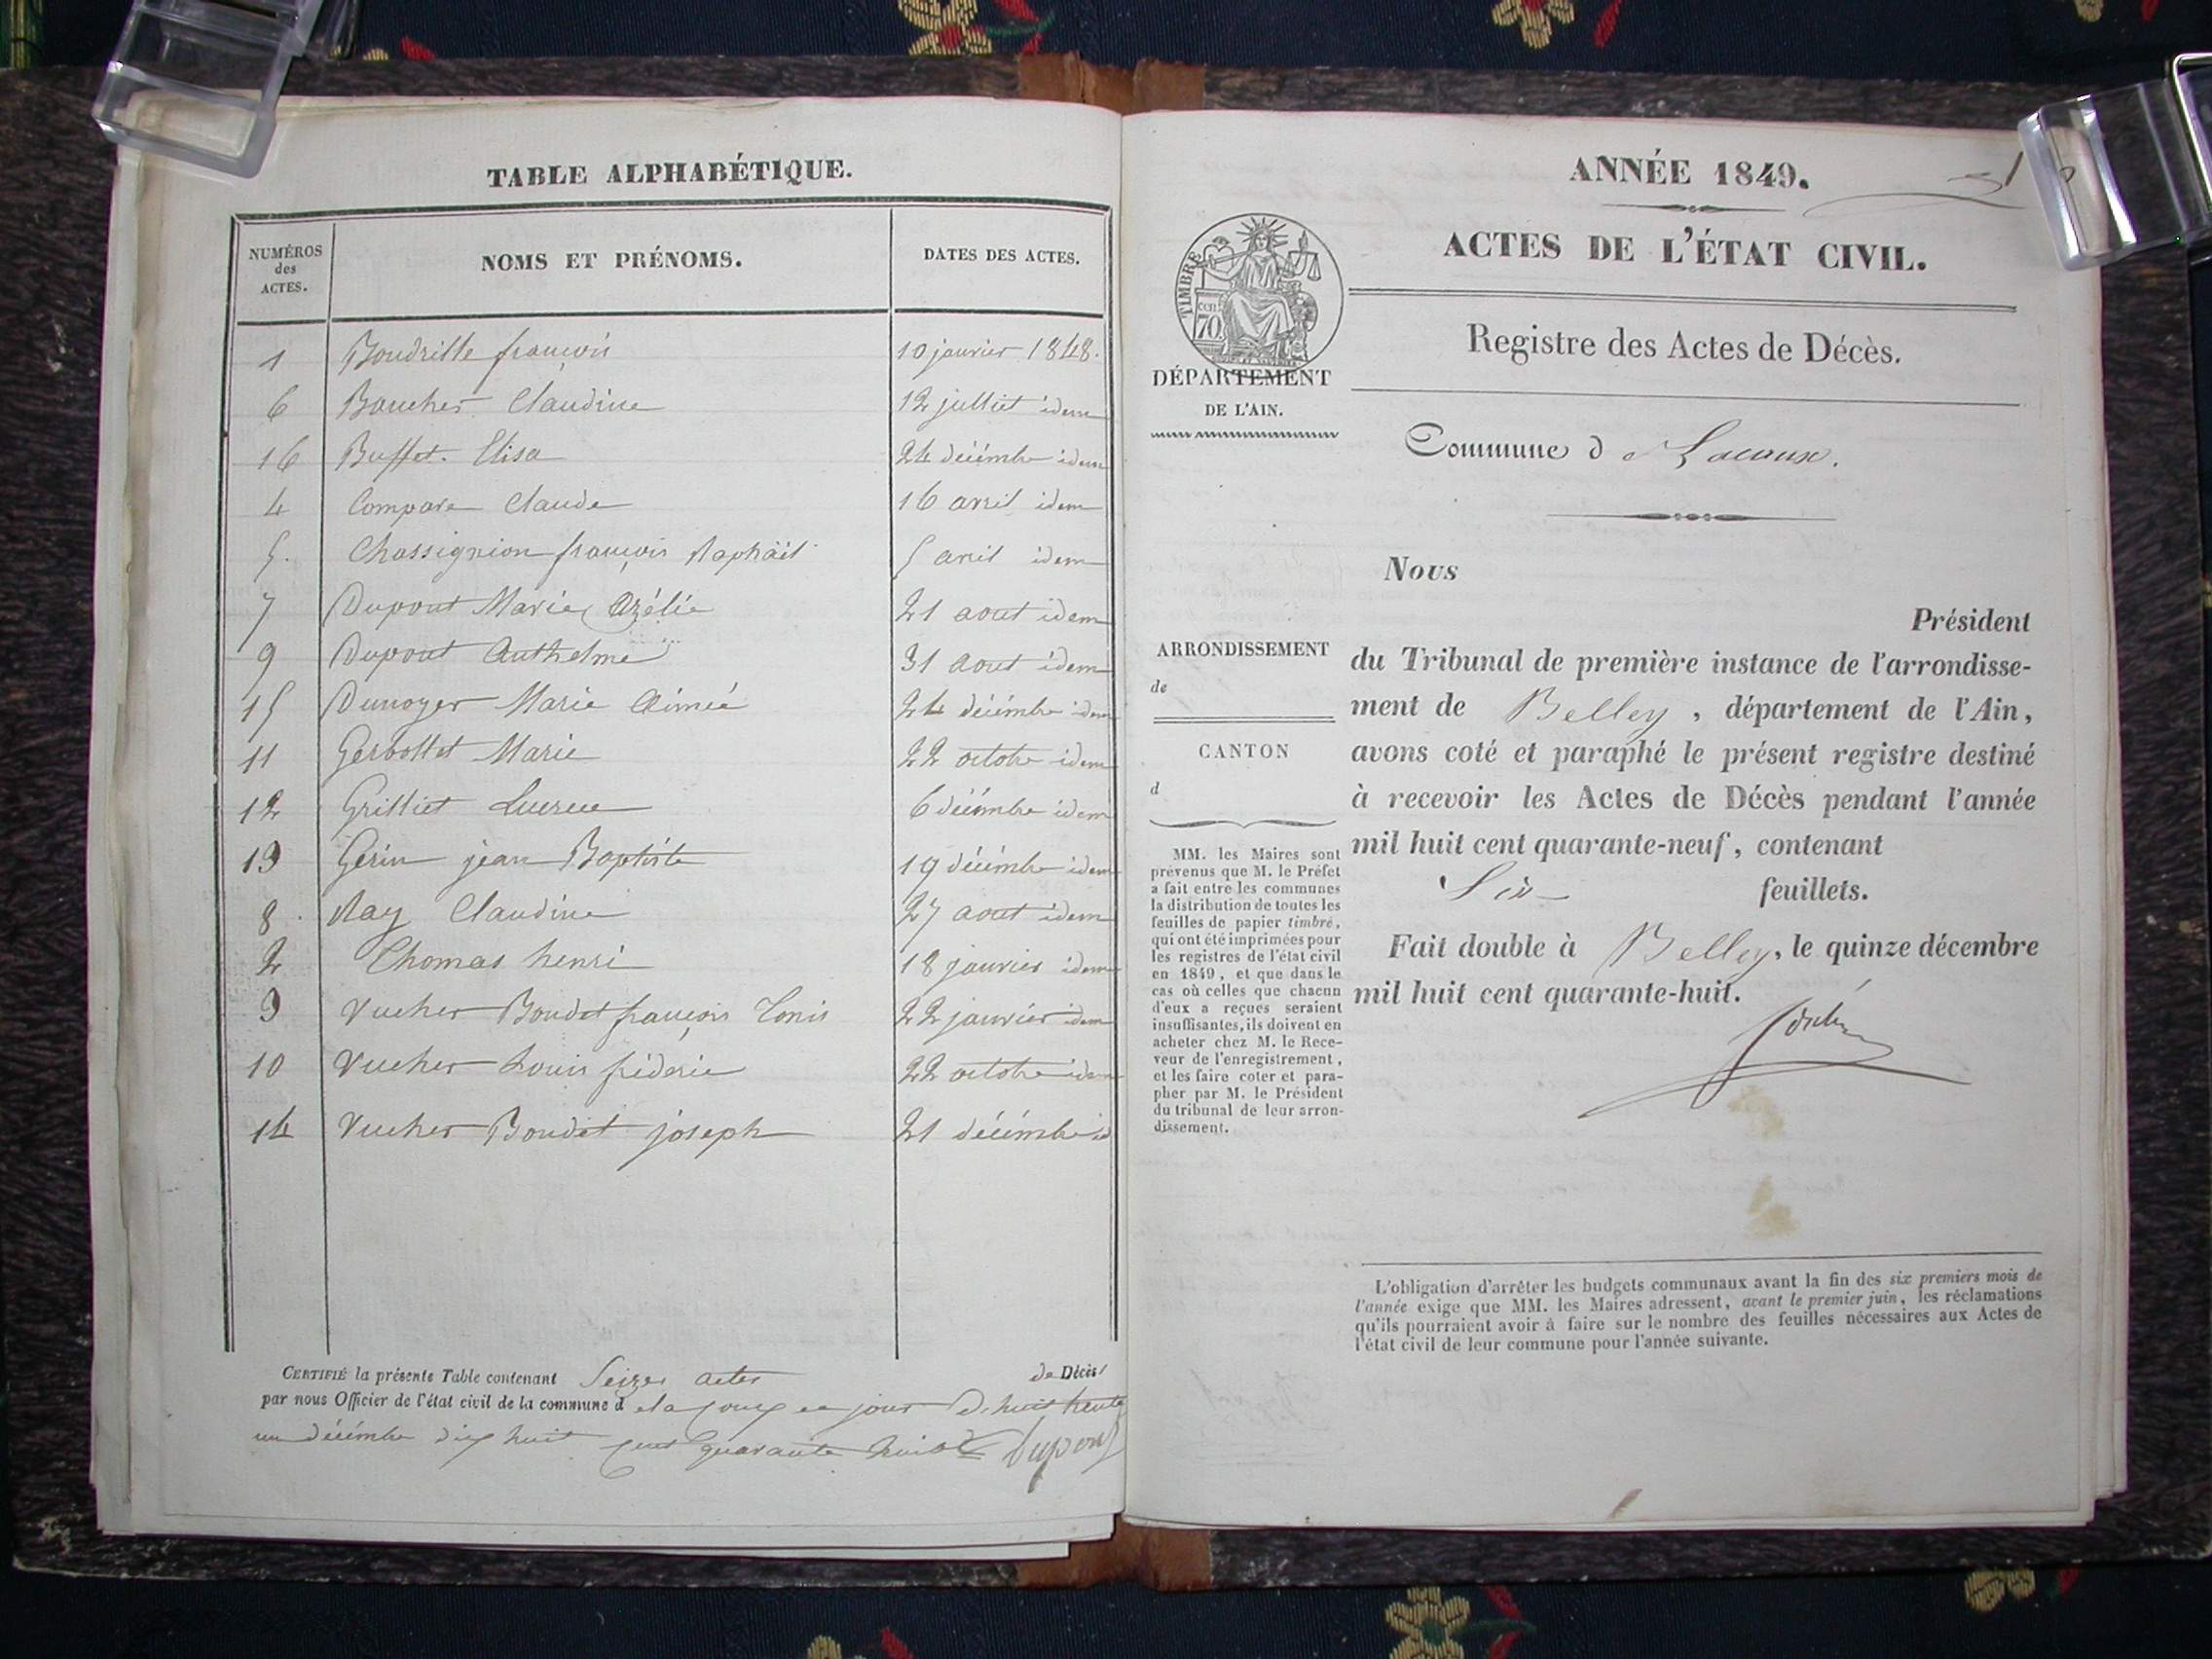 TABLE ALPHABÉTIQUE.
NUMÉROS
des
ACTES.
NOMS ET PRÉNOMS.
DATES DES ACTES.
1 Boudrille françois 10 janvier 1848.
6 Boucher Claudine 12 julliet idem
16 Buffet Elisa 24 décémbre idem
4 Compare Claude 16 avril idem
5. Chassignion françois Raphäël 5 avril idem
7 Dupont Marie Azélie 21 aout idem
9 Dupont Anthelme 31 aout idem
15 Dunoyer Marie Aimée 24 décémbre idem
11 Gerbollet Marie 22 octobre idem
12 Grilliet 6 décémbre idem
13 Gerin jean Baptiste 19 décémbre idem
8. Ray Claudine 27 aout idem
2 Thomas henri 18 janvier idem
3 Vucher Boudet françois 22 janvier idem
10 Vucher Louis fréderic 22 octobre idem
14 Vucher Boudet joseph 21 décémbre id
CERTIFIÉ la présente Table contenant Seizes actes de Décès
par nous Officier de l'état civil de la commune d jour trente
un décémbre dix huit cent quarante huit Dupont
ANNÉE 1849.
1
ACTES DE L'ÉTAT CIVIL.
TIMBRE
cen.
70
Registre des Actes de Décès.
DÉPARTEMENT
DE L'AIN.
Commune d
Nous
Président
ARRONDISSEMENT
de
CANTON
d
du Tribunal de première instance de l'arrondisse-
ment de Belley, département de l'Ain,
avons coté et paraphé le présent registre destiné
à recevoir les Actes de Décès pendant l'année
mil huit cent quarante-neuf, contenant
Six feuillets.
Fait double à Belley, le quinze décembre
mil huit cent quarante-huit.
MM. les Maires sont
prévenus que M. le Préfet
a fait entre les communes
la distribution de toutes les
feuilles de papier timbré,
qui ont été imprimées pour
les registres de l'état civil
en 1849, et que dans le
cas où celles que chacun
d'eux a reçues seraient
insuffisantes, ils doivent en
acheter chez M. le Rece-
veur de l'enregistrement,
et les faire coter et para-
pher par M. le Président
du tribunal de leur arron-
dissement.
L'obligation d'arrêter les budgets communaux avant la fin des six premiers mois de
l'année exige que MM. les Maires adressent, avant le premier juin, les réclamations
qu'ils pourraient avoir à faire sur le nombre des feuilles nécessaires aux Actes de
l'état civil de leur commune pour l'année suivante.